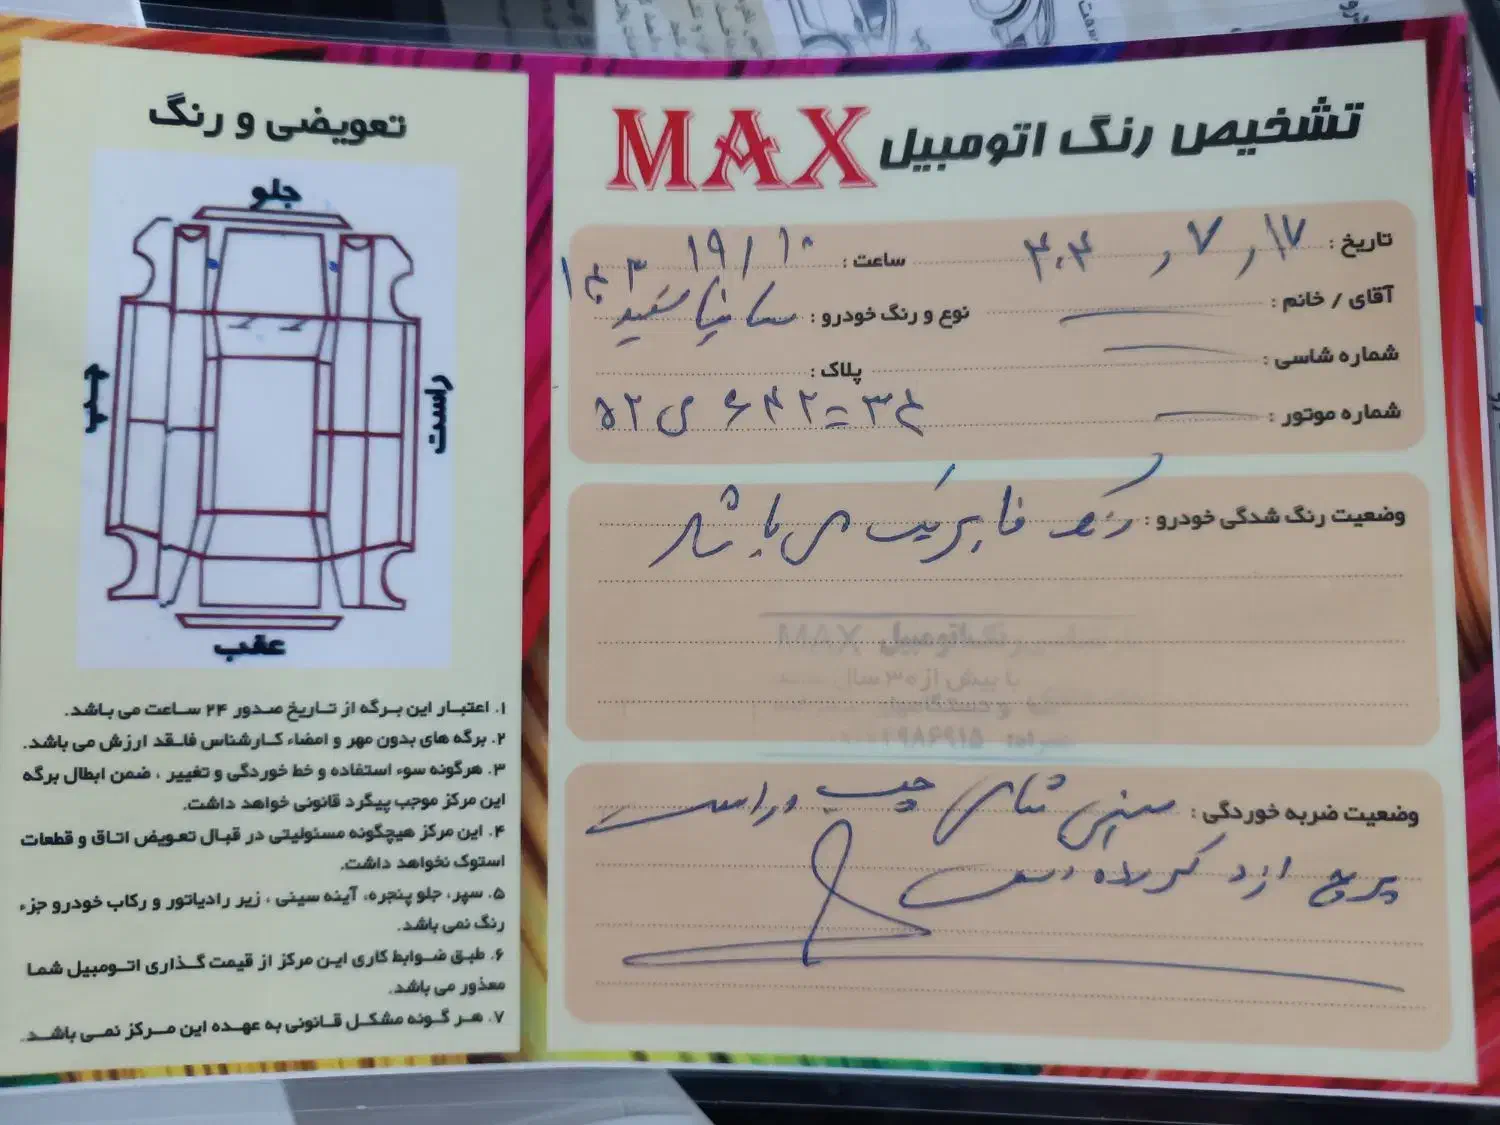 تشخیص رنگ اتومبیل MAX
تاریخ : ۱۷ , ۷ , ۴۰۴
ساعت : ۱۹/۱۰
آقای / خانم :
نوع و رنگ خودرو : ساینا سفید ۱۴۰۳
شماره شاسی :
پلاک :
شماره موتور :
۵۲ ی ۶۴۲ = ۴۳
وضعیت رنگ شدگی خودرو : رنگ فابریک می باشد
MAX
با بیش از ۳۰ سال
وضعیت ضربه خوردگی : سینی شاسی چپ و راست
پرچ
تعویضی و رنگ
جلو
چپ
راست
عقب
۱. اعتبار این برگه از تاریخ صدور ۲۴ ساعت می باشد.
۲. برگه های بدون مهر و امضاء کارشناس فاقد ارزش می باشد.
۳. هرگونه سوء استفاده و خط خوردگی و تغییر ، ضمن ابطال برگه
این مرکز موجب پیگرد قانونی خواهد داشت.
۴. این مرکز هیچگونه مسئولیتی در قبال تعویض اتاق و قطعات
استوک نخواهد داشت.
۵. سپر، جلو پنجره، آینه سینی ، زیر رادیاتور و رکاب خودرو جزء
رنگ نمی باشد.
۶. طبق ضوابط کاری این مرکز از قیمت گذاری اتومبیل شما
معذور می باشد.
۷. هر گونه مشکل قانونی به عهده این مرکز نمی باشد.